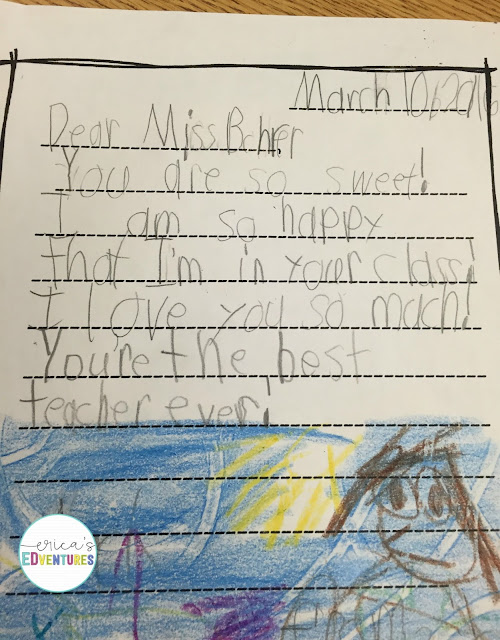 March 10, 2016
Dear Miss Bohrer
You are so sweet!
I am so happy
that I'm in your class!
I love you so mach!
You're the best
teacher ever!
erica's
EDVENTURES